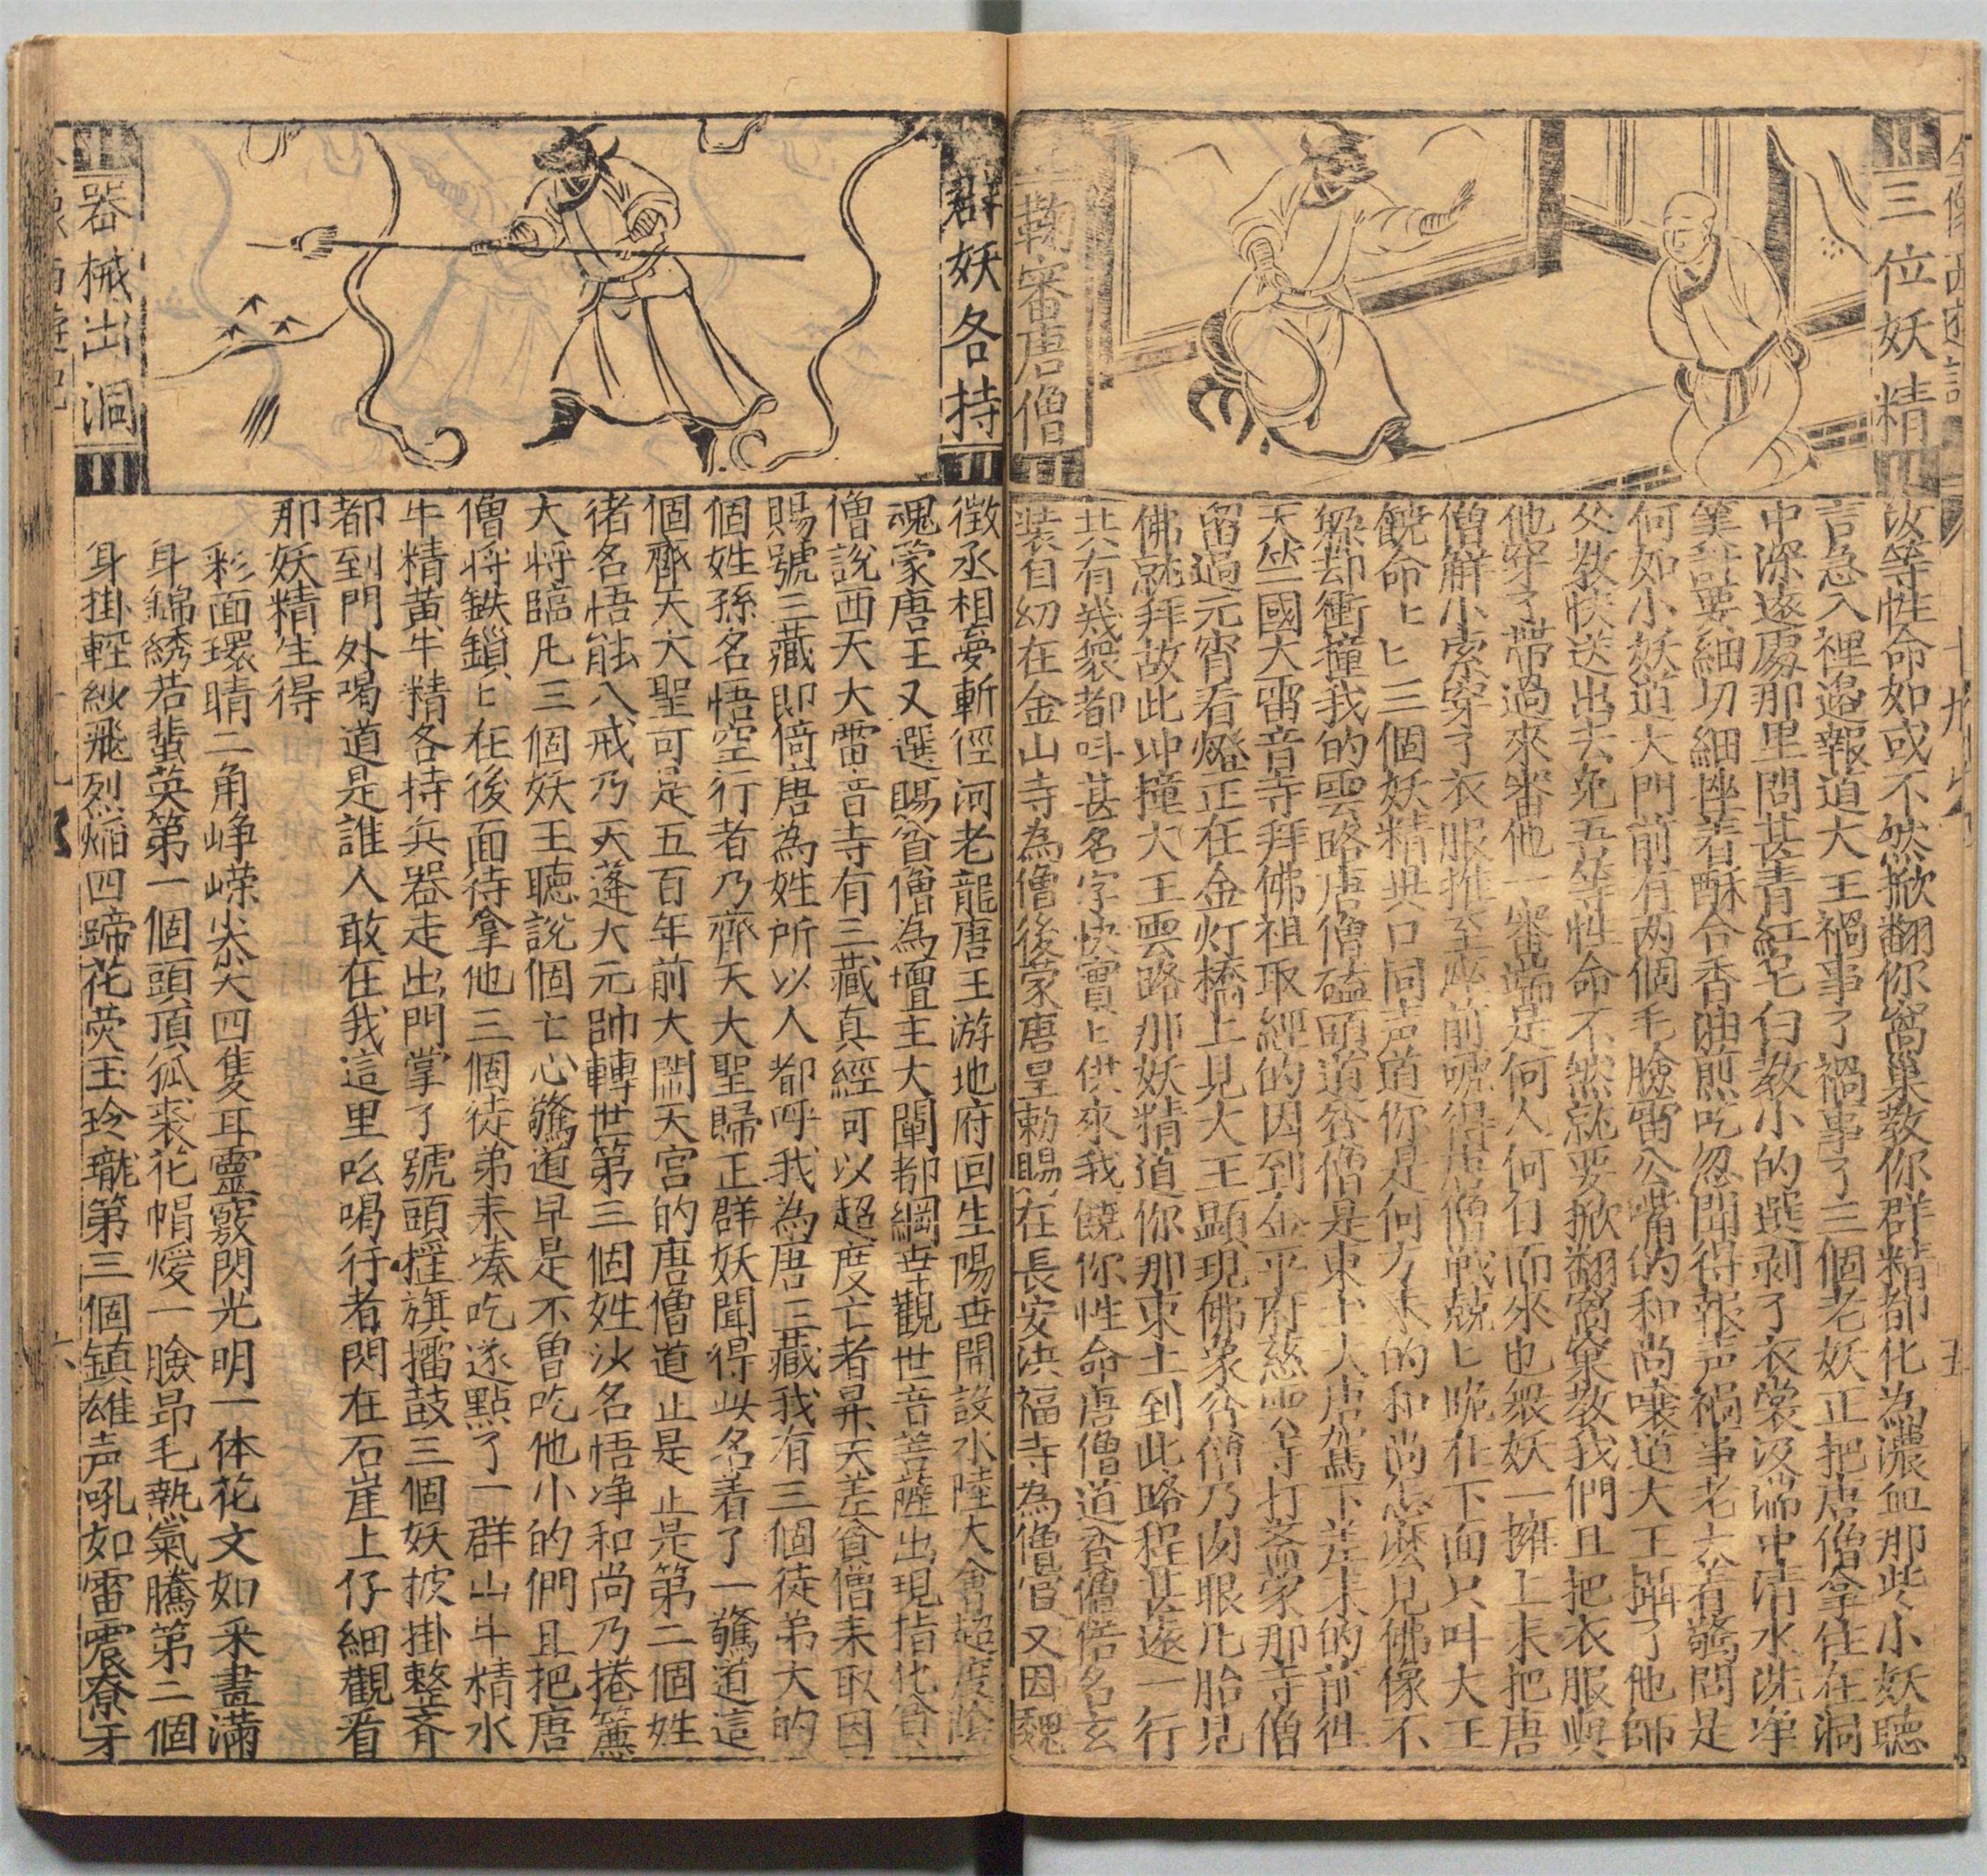 三位妖精
鞫審唐僧
汝等性命如或不然掀翻你窩巢教你群精都化為濃血那些小妖聽
言急入裡邉報道大王禍事了禍事了三個老妖正把唐僧拿住在洞
中深遂處那里問甚青紅皂白教小的選剥了衣裳汲湍中清水洗净
筭計要細切細挫着酥合香油煎吃忽聞得報声禍事老大着驚問是
何如小妖道大門前有两個毛臉雷公嘴的和尚嚷道大王攝了他師
父教快送出去免吾等性命不然就要掀翻窩巢教我們且把衣服與
他穿了帶過來審他一審端是何人何自而來也衆妖一擁上來把唐
僧解小索穿了衣服推至座前唬得唐僧戰兢匕跪在下面只叫大王
饒命匕匕三個妖精共口同声道你是何方來的和尚怎麽見佛像不
躱却衝撞我的雲路唐僧磕頭道貧僧是東土大唐駕下差來的前徃
天竺國大雷音寺拜佛祖取經的因到金平府慈雲寺打斋蒙那寺僧
留過元宵看燈正在金灯橋上見大王顯現佛象貧僧乃肉眼凡胎見
佛就拜故此冲撞大王雲路那妖精道你那東土到此路程甚遠一行
共有幾衆都呌甚名字快實匕供來我饒你性命唐僧道貧僧俗名玄
装自幼在金山寺為僧後蒙唐皇勅賜在長安洪福寺為僧官又因魏
群妖各持
器械出洞
徴丞相夢斬徑河老龍唐王游地府回生陽世開設水陸大會超度陰
魂蒙唐王又選賜貧僧為壇主大闡都綱幸觀世音菩薩出現指化貧
僧說西天大雷音寺有三藏真經可以超度亡者昇天差貧僧来取因
賜號三藏即倚唐為姓所以人都呼我為唐三藏我有三個徒弟大的
個姓孫名悟空行者乃齊天大聖歸正群妖聞得此名着了一驚道這
個齊天大聖可是五百年前大鬧天宫的唐僧道止是止是第二個姓
猪名悟能八戒乃天蓬大元帥轉世第三個姓沙名悟净和尚乃捲簾
大将臨凡三個妖王聽說個亡心驚道早是不曽吃他小的們且把唐
僧将鉄鎖匕在後面待拿他三個徒弟来凑吃遂點了一群山牛精水
牛精黄牛精各持兵器走出門掌了號頭摇旗擂鼓三個妖披掛整齊
都到門外喝道是誰人敢在我這里吆喝行者閃在石崖上仔細觀看
那妖精生得
彩面環睛二角峥嵘尖尖四隻耳靈竅閃光明一体花文如采畫滿
身錦綉若蜚英第一個頭頂狐裘花帽煖一臉昻毛熱氣騰第二個
身掛輕紗飛烈焰四蹄花荧玉玲瓏第三個鎮雄声吼如雷震獠牙